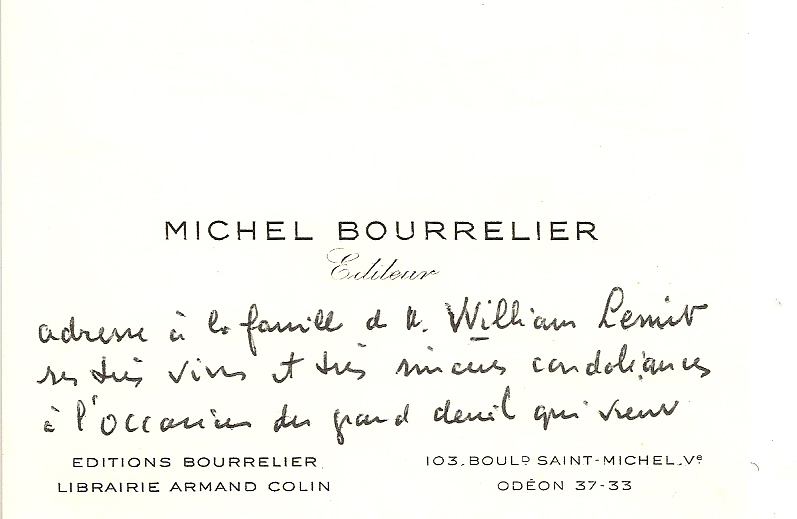 MICHEL BOURRELIER
Editeur
adresse à la famille de M. William Lemit
ses très vives et très sincères condoléances
à l'occasion du grand deuil qui vient
EDITIONS BOURRELIER
LIBRAIRIE ARMAND COLIN
103, BOULD SAINT-MICHEL, Ve
ODÉON 37-33